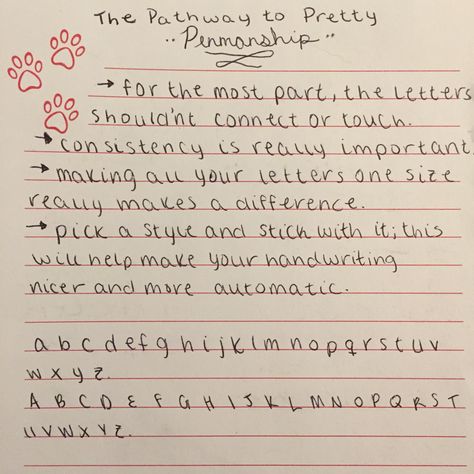 The Pathway to Pretty
··Penmanship··
→ for the most part, the letters
should'nt connect or touch.
→ consistency is really important.
→ making all your letters one size
really makes a difference.
→ pick a style and stick with it; this
will help make your handwriting
nicer and more automatic.
a b c d e f g h i j k l m n o p q r s t u v
w x y z.
A B C D E F G H I J K L M N O P Q R S T
U V W X Y Z.